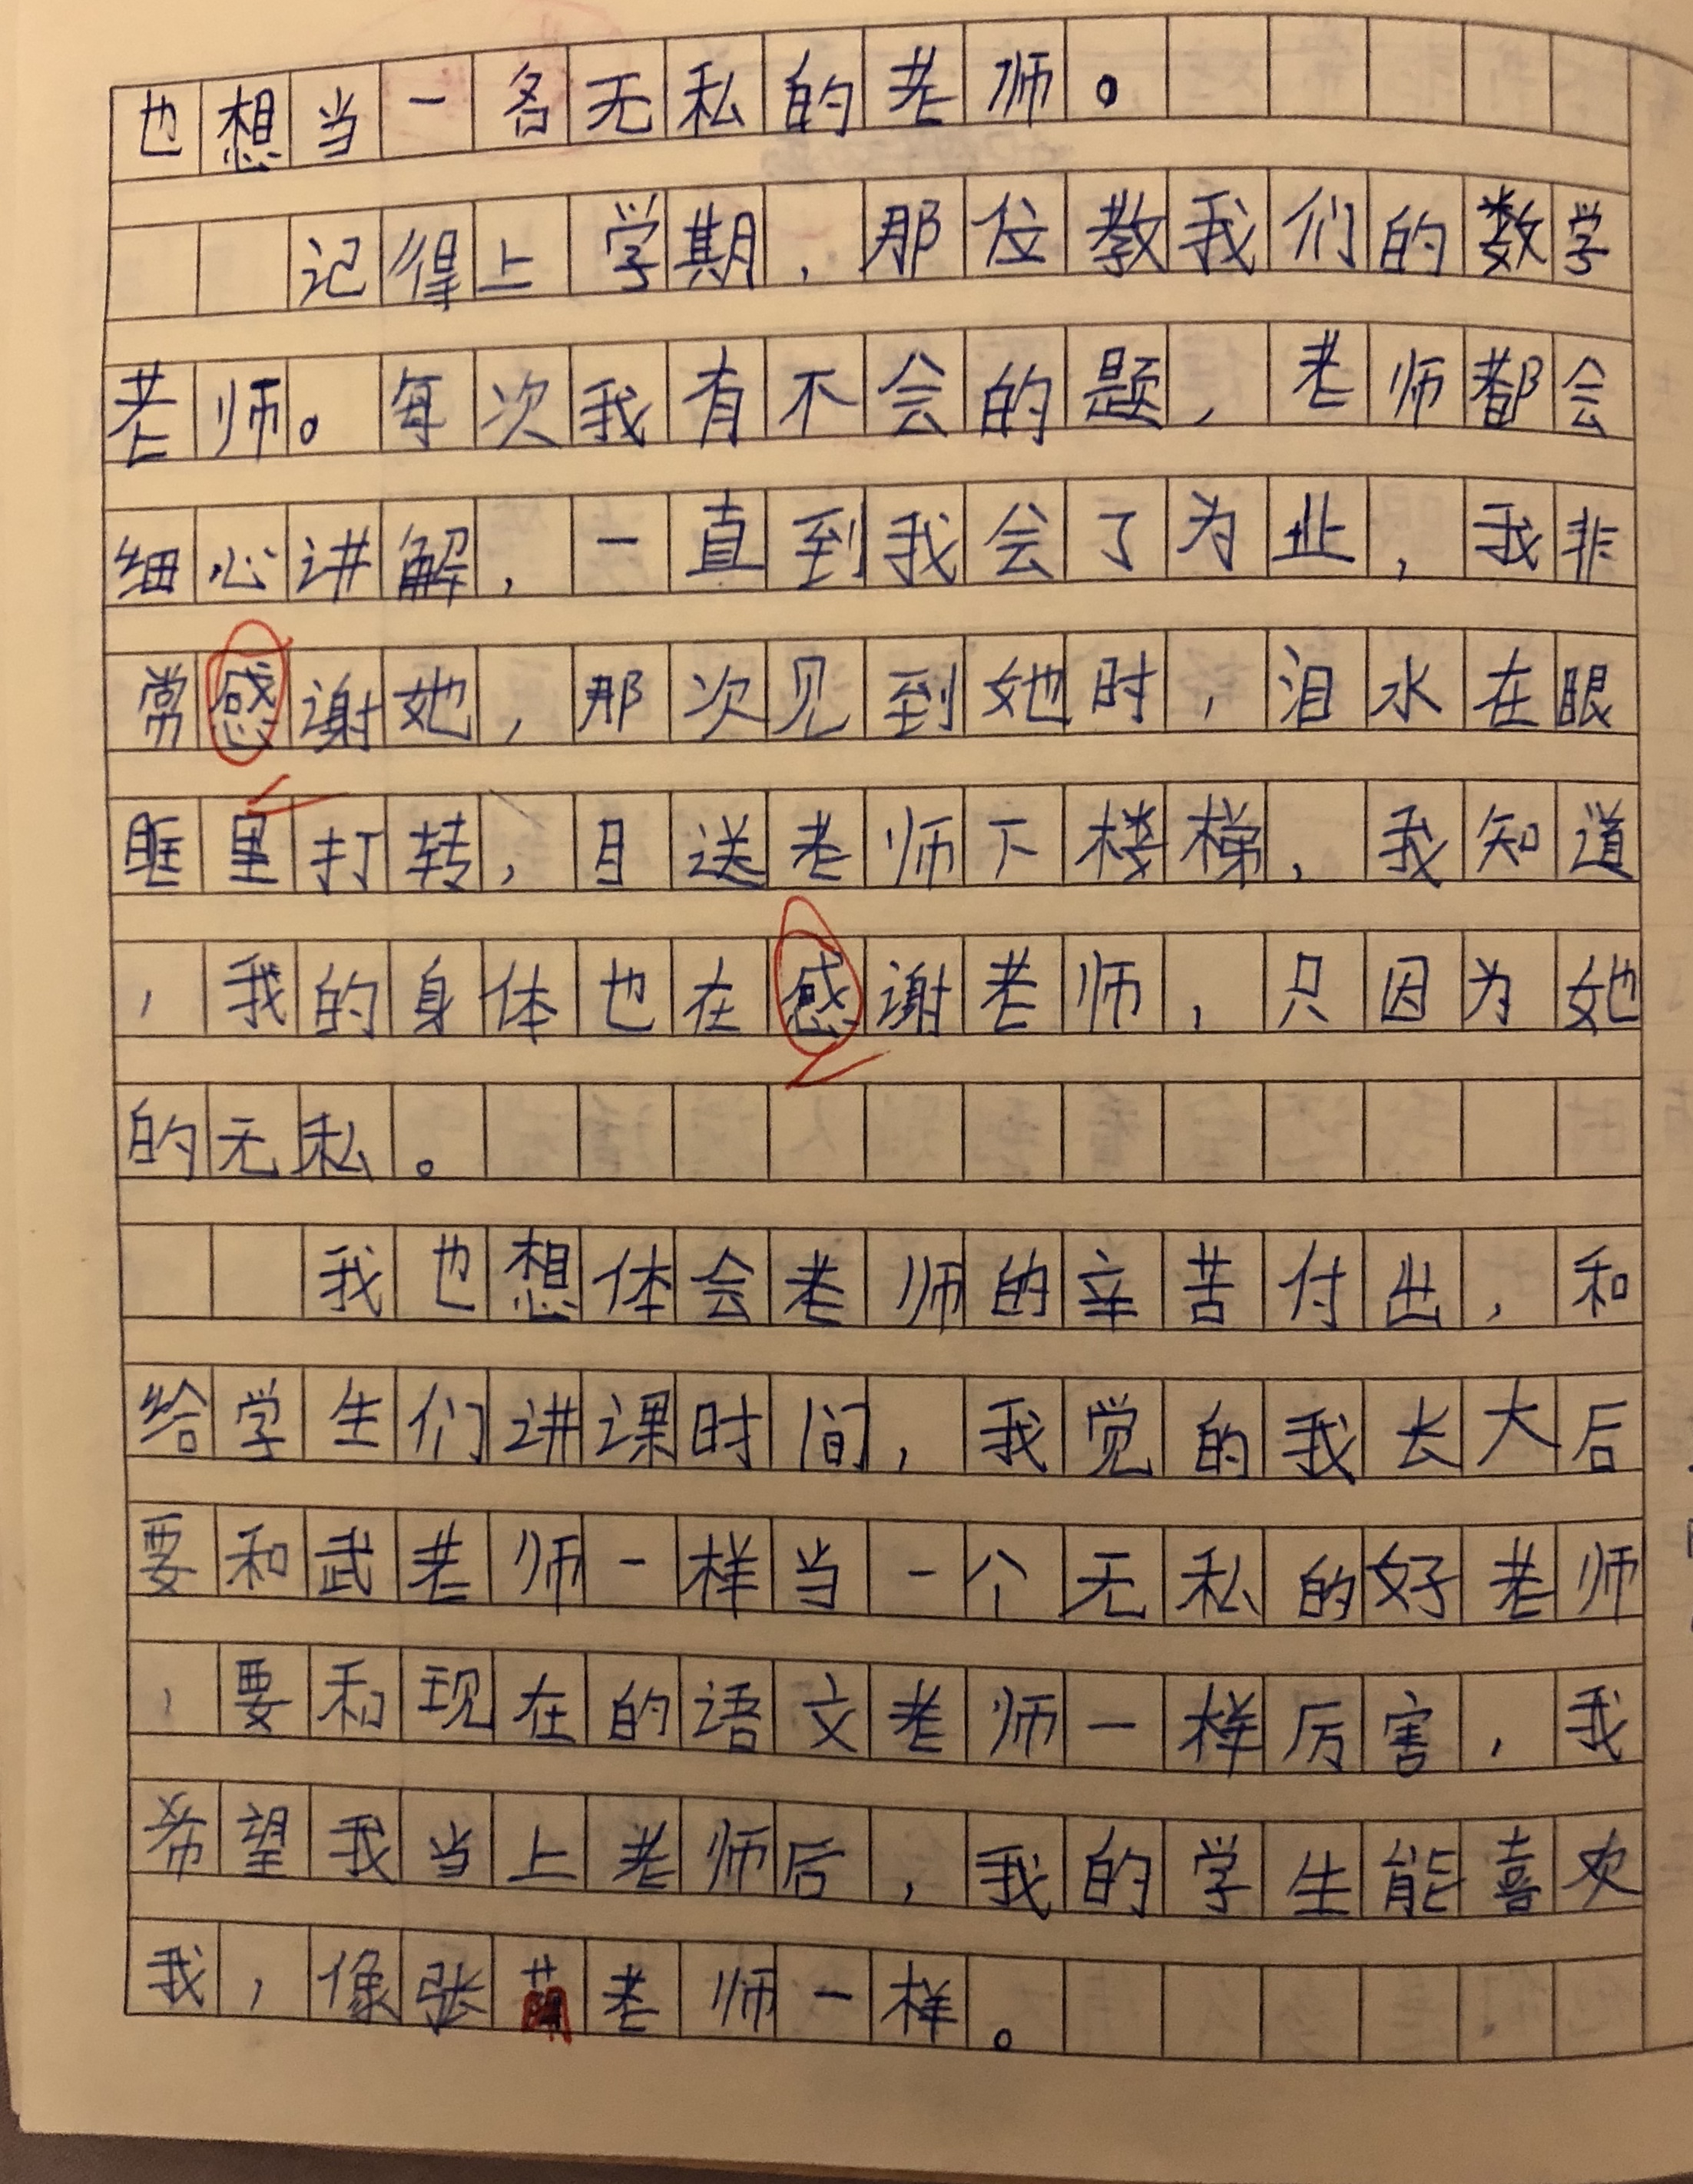 也想当一名无私的老师。
记得上学期，那位教我们的数学
老师。每次我有不会的题，老师都会
细心讲解，一直到我会了为止，我非
常感谢她，那次见到她时，泪水在眼
眶里打转，目送老师下楼梯，我知道
，我的身体也在感谢老师，只因为她
的无私。
我也想体会老师的辛苦付出，和
给学生们讲课时间，我觉的我长大后
要和武老师一样当一个无私的好老师
，要和现在的语文老师一样厉害，我
希望我当上老师后，我的学生能喜欢
我，像张老师一样。